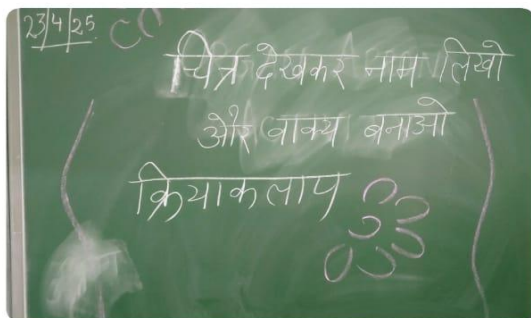 23/4/25
चित्र देखकर नाम लिखो
और वाक्य बनाओ
क्रियाकलाप